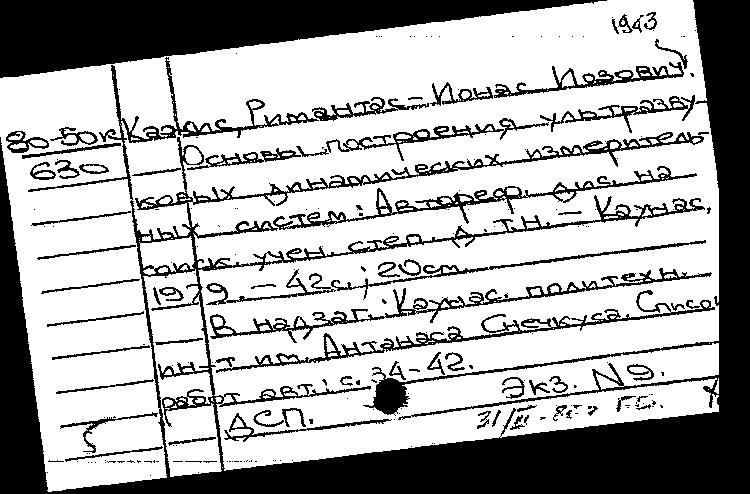 1943
80-50к Кажис, Римантас-Ионас Иозович.
630 Основы построения ультразву-
ковых динамических измеритель-
ных систем: Автореф. дис. на
соиск. учен. степ. д.т.н. - Каунас,
1979. - 42с.; 20см.
В надзаг.: Каунас. политехн.
ин-т им. Антанаса Снечкуса. Список
работ авт.: с. 34-42.
ДСП. Экз. №9.